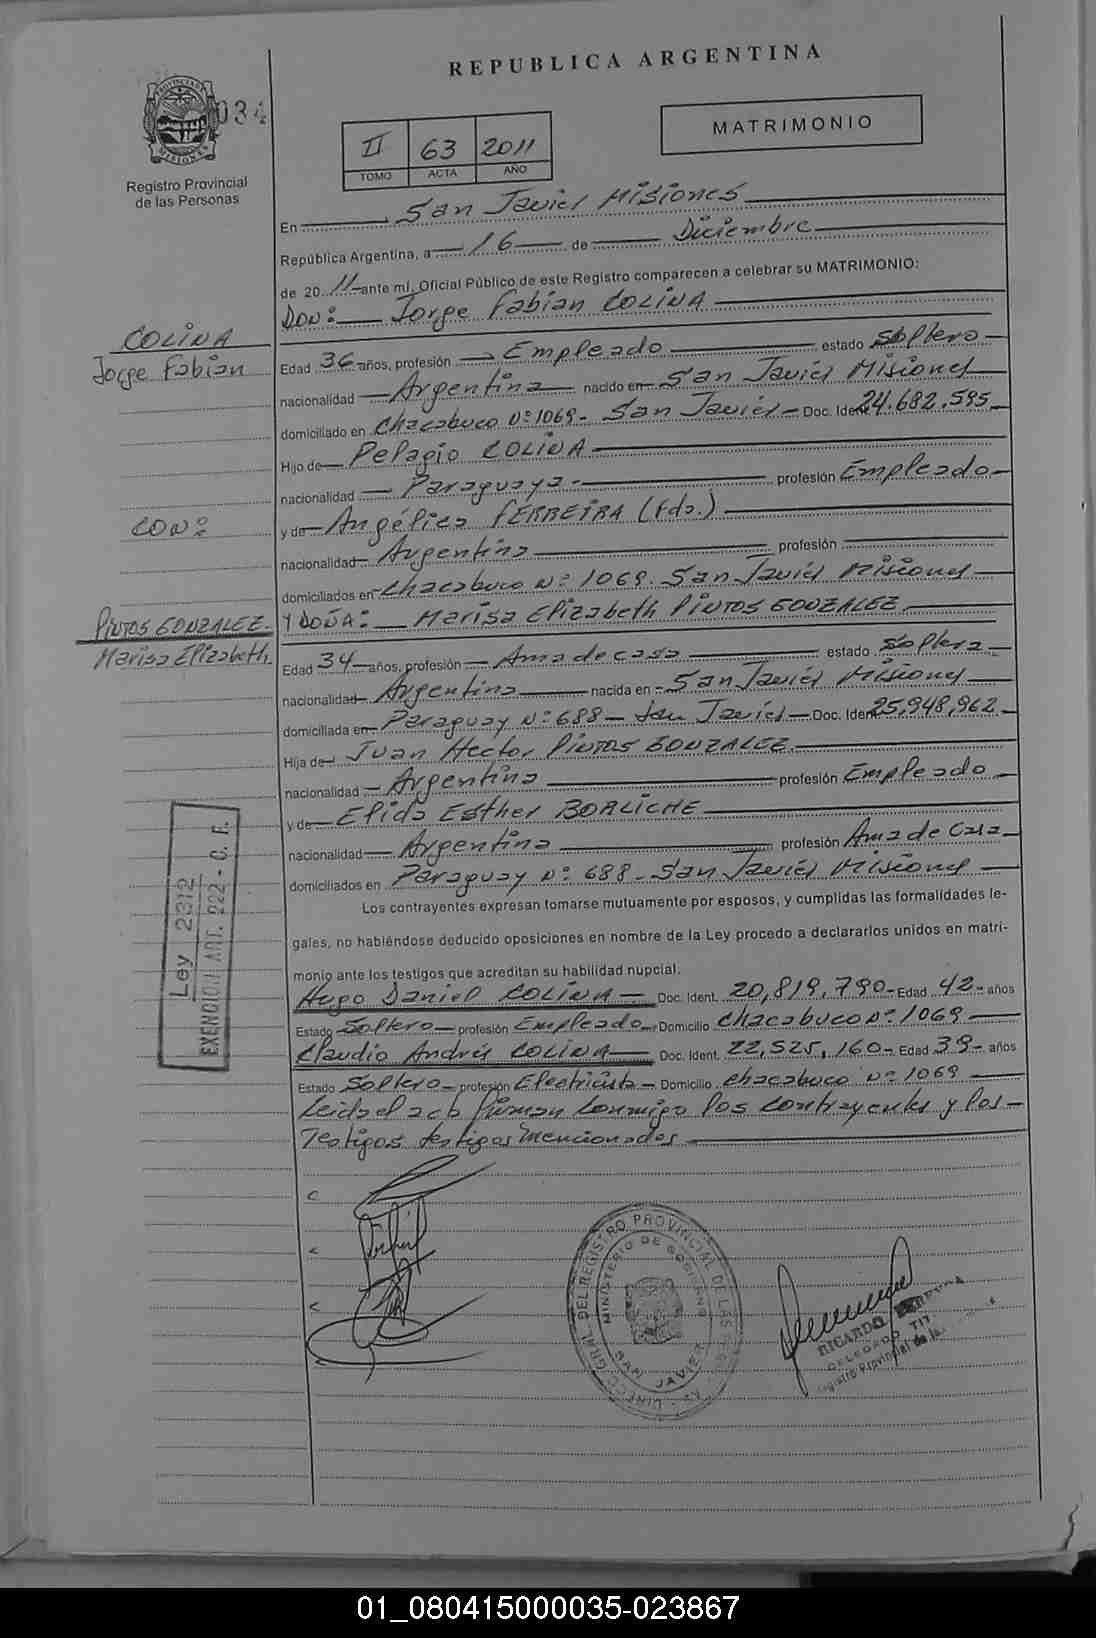 REPUBLICA ARGENTINA
PROVINCIA DE MISIONES
034
Registro Provincial
de las Personas
II 63 2011
TOMO ACTA AÑO
MATRIMONIO
En San Javier Misiones
República Argentina, a 16 de Diciembre
de 20 11 ante mí, Oficial Público de este Registro comparecen a celebrar su MATRIMONIO:
DON: Jorge Fabian COLINA
COLINA
Jorge Fabian
Edad 36 años, profesión Empleado estado Soltero
nacionalidad Argentina nacido en San Javier Misiones
domiciliado en Chacabuco Nº 1069 - San Javier - Doc. Ident 24.682.595
Hijo de Pelagio COLINA
nacionalidad Paraguaya - profesión Empleado
CON:
y de Angélica FERREIRA (Fda.)
nacionalidad Argentina profesión
domiciliados en Chacabuco Nº 1069. San Javier Misiones
PINTOS GONZALEZ
Marisa Elizabeth
Y DOÑA: Marisa Elizabeth PINTOS GONZALEZ
Edad 34 años, profesión Ama de casa estado Soltera
nacionalidad Argentina nacida en San Javier Misiones
domiciliada en Paraguay Nº 688 - San Javier - Doc. Ident 25,948,962
Hija de Juan Hector PINTOS GONZALEZ.
nacionalidad Argentina profesión Empleado
y de Elida Esther BORLICHE
nacionalidad Argentina profesión Ama de Casa
domiciliados en Paraguay Nº 688 - San Javier Misiones
Los contrayentes expresan tomarse mutuamente por esposos, y cumplidas las formalidades le-
gales, no habiéndose deducido oposiciones en nombre de la Ley procedo a declararlos unidos en matri-
monio ante los testigos que acreditan su habilidad nupcial.
Hugo Daniel COLINA - Doc. Ident. 20,819,790 - Edad 42 - años
Estado Soltero - profesión Empleado - Domicilio Chacabuco Nº 1069
Claudio Andrés COLINA Doc. Ident. 22,525,160 - Edad 39 - años
Estado Soltero - profesión Electricista - Domicilio Chacabuco Nº 1069
Leida el acta firman conmigo los contrayentes y los
Testigos testigos mencionados
Ley 2312
EXENCION ART. 222 - C. F.
DIRECC. GRAL. DEL REGISTRO PROVINCIAL DE LAS
MINISTERIO DE GOBIERNO
SAN JAVIER
RICARDO
DELEGADO TIT.
Registro Provincial de las
01_080415000035-023867